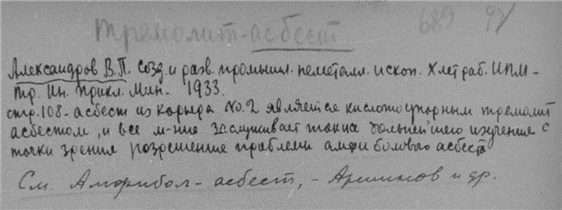 тремолит-асбест
689 92
Александров В.П. Созд. и разв. промышл. неметалл. ископ. X лет раб. ИПМ –
Тр. Ин. Прикл. Мин. 1933.
стр. 108 – асбест из карьера No. 2 является кислотоупорным тремолит
асбестом, и все м-ние заслуживает также дальнейшего изучения с
точки зрения разрешение проблемы амфиболового асбеста
См. Амфибол-асбест, – Аршинов и др.